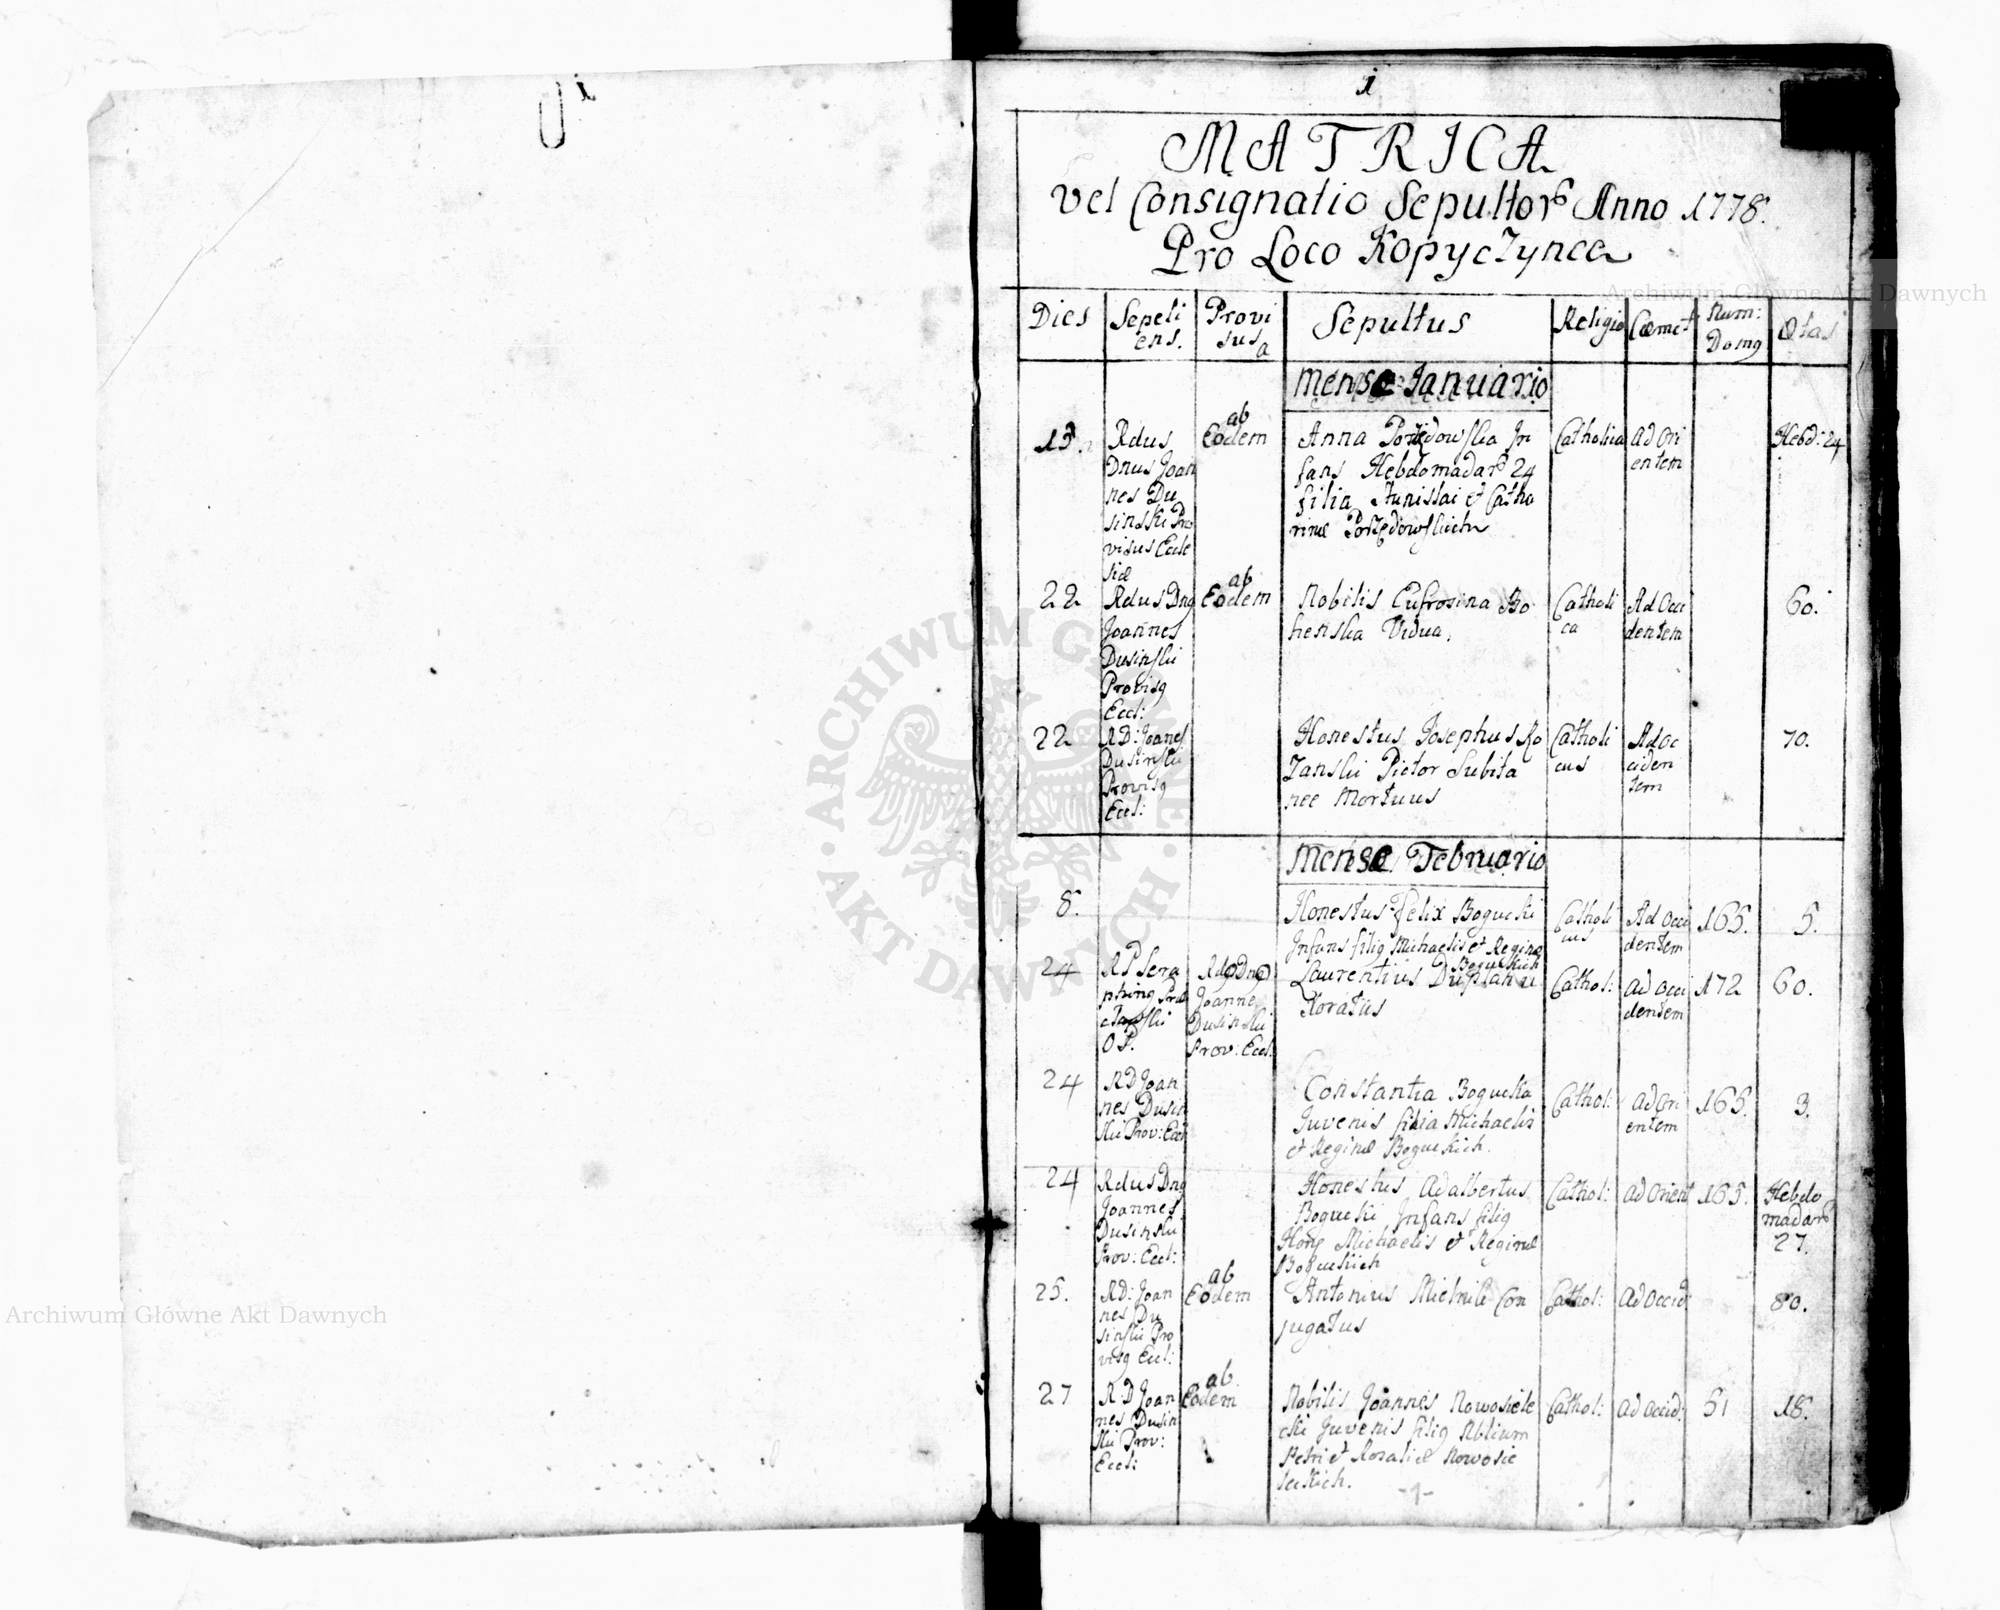 1
MATRICA
vel Consignatio Sepultor Anno 1778.
Pro Loco Kopyczynce
Dies
Sepeli
ens.
Provi
sus
a
Sepultus
Religio
Cœmet:
Num:
Domg
Ætas
Mense Januario
13.
Rdus
Dnus Joan
nes Du
sinski Pro
visus Eccle
siæ
ab
Eodem
Anna In
fans Hebdomadar 24
filia Stanislai et Catha
rinæ
Catholica
Ad Ori
entem
Hebd: 24
22
Rdus Dng
Joannes
Dusinski
Provisg
Eccl:
ab
Eodem
Nobilis Eufrosina Bo
henska Vidua.
Catholi
ca
Ad Occi
dentem
60.
22
RD: Joanes
Dusinski
Provisg
Eccl:
Honestus Josephus Ro
zanski Pictor Subita
nee Mortuus
Catholi
cus
Ad Oc
ciden
tem
70.
Mense Februario
8.
Honestus Felix Bogucki
Infans filig Michaelis et Reginæ
Boguckich
Catholi
cus
Ad Occi
dentem
165.
5.
24
RP Sera
phing
OP.
Rdo Dno
Joanne
Dusinski
Prov: Eccl.
Laurentius
Catthol:
Ad Occi
dentem
172
60.
24
RD Joan
nes Dusin
ski Prov: Eccl
Constantia Bogucka
Juvenis filia Michaelis
et Reginæ Boguckich.
Cathol:
Ad Ori
entem
165.
3.
24
Rdus Dng
Joannes
Dusinski
Prov: Eccl:
Honestus Adalbertus
Bogucki Infans filig
Hong Michaelis et Reginæ
Boguckich
Cathol:
Ad Orient
165.
Hebdo
madar
27.
25.
RD: Joan
nes Du
sinski Pro
visg Eccl:
ab
Eodem
Antonius Mielnik Con
jugatus
Cathol:
Ad Occid:
80.
27
R:D Joan
nes Dusin
ski Prov:
Eccl:
ab
Eodem
Nobilis Joannes Nowosiele
cki Juvenis filig Nblium
Petri et Rosaliæ Nowosie
leckich.
Cathol:
Ad Occid:
51
18.
-1-
Archiwum Główne Akt Dawnych
ARCHIWUM GŁÓWNE
AKT DAWNYCH
Archiwum Główne Akt Dawnych